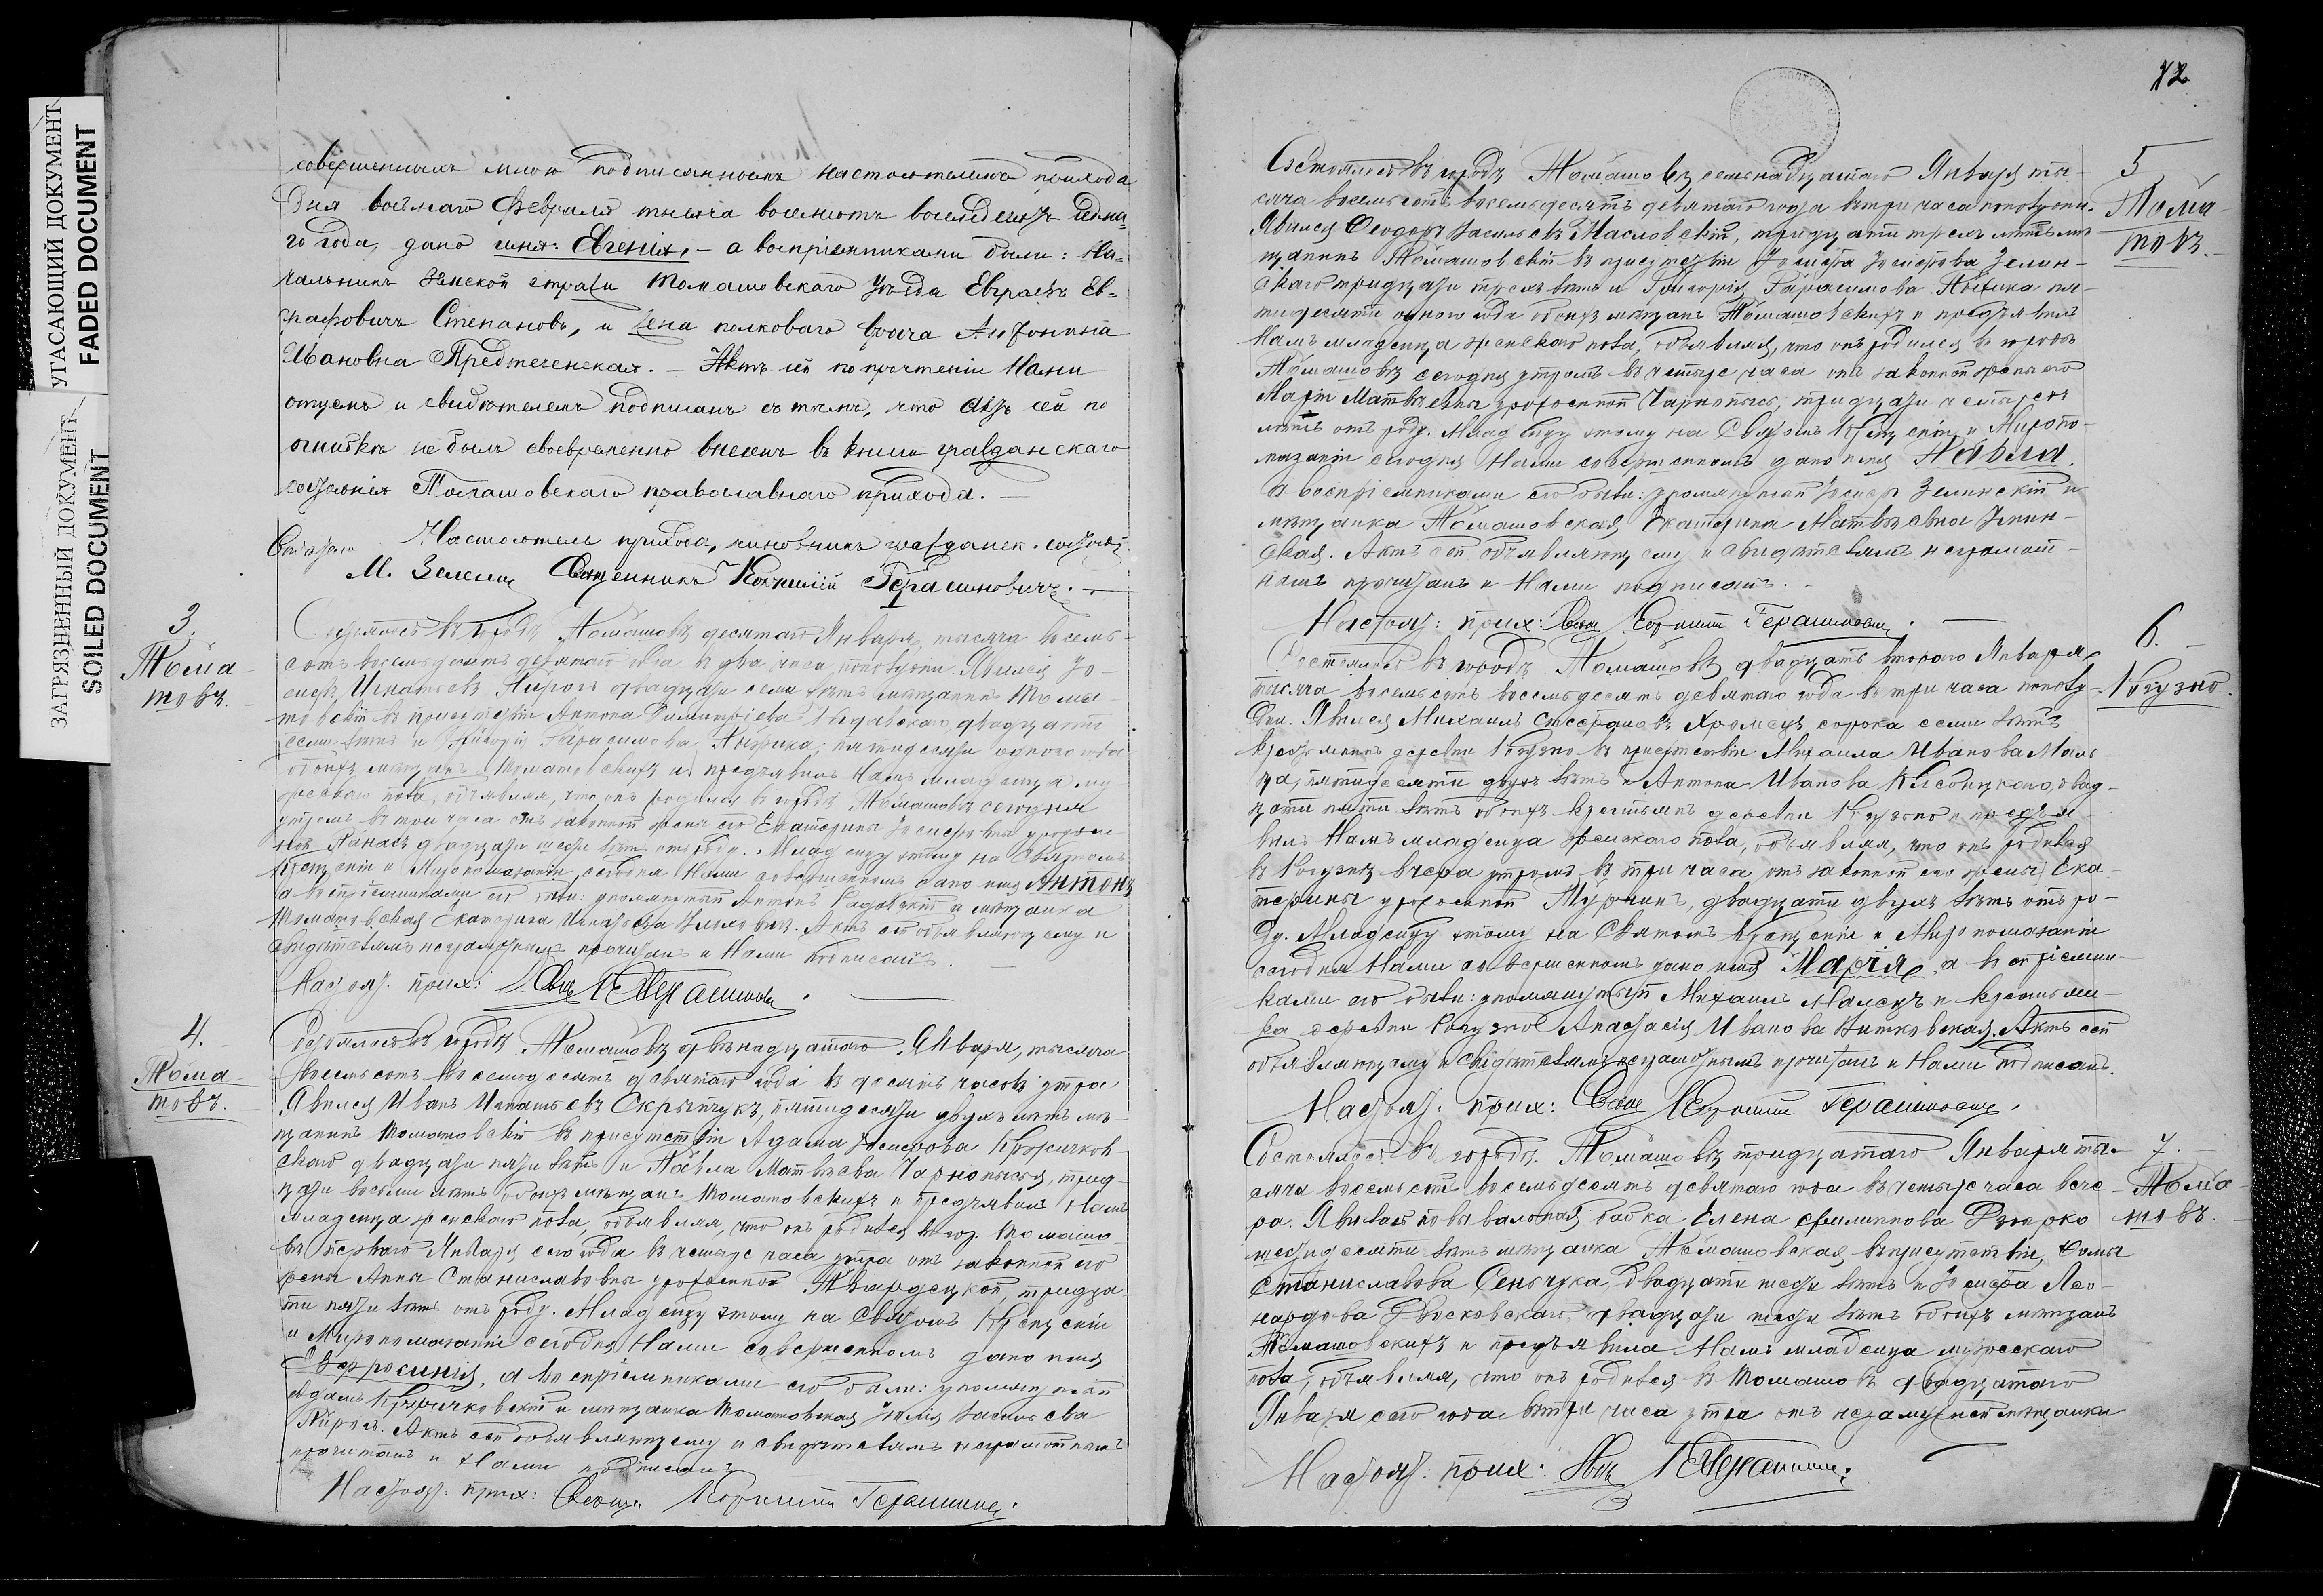 УГАСАЮЩИЙ ДОКУМЕНТ
FADED DOCUMENT
ЗАГРЯЗНЕННЫЙ ДОКУМЕНТ
SOILED DOCUMENT
совершенномъ мною подписанномъ настоятелемъ прихода
дня восьмаго Февраля тысяча восемьсотъ восемьдесятъ седьма-
го года, дано имя: Евгенія, – а воспріемниками были: На-
чальникъ Земской стражи Томашовскаго Уѣзда Евграфъ Ев-
графовичъ Степановъ, и жена полковаго врача Антонина
Ивановна Предтеченская. – Актъ сей по прочтеніи Нами
отцемъ и свидѣтелемъ подписанъ съ тѣмъ, что актъ сей по
ошибкѣ не былъ своевременно внесенъ въ книги гражданскаго
состоянія Томашовскаго православнаго прихода. –
Настоятель прихода, чиновникъ гражданск. состоян.
М. Священникъ Корнилій Герасимовичъ. –
3.
Тома-
шовъ.
Состоялось въ городѣ Томашовѣ десятаго Января, тысяча восемь-
сотъ восемьдесятъ девятаго года въ два часа пополудни. Явился Іо-
сифъ Игнатьевъ Пирогъ двадцати семи лѣтъ мѣщанинъ Тома-
шовскій въ присутствіи Антона Димитріева двадцати
семи лѣтъ и Григорія Герасимова пятидесяти одного года
обоихъ мѣщанъ Томашовскихъ и предъявилъ Намъ младенца му-
жескаго пола, объявляя, что онъ родился въ городѣ Томашовѣ сегодня
утромъ въ три часа отъ законной жены его Екатерины Іосифовны урожден-
ной Панасъ двадцати шести лѣтъ отъ роду. Младенцу этому на Святомъ
Крещеніи и Миропомазаніи, сегодня Нами совершенномъ дано имя Антонъ
а воспріемниками его были: упомянутый Антонъ и мѣщанка
Томашовская Екатерина Игнатьева. Актъ сей объявляющему и
свидѣтелямъ неграмотнымъ прочитанъ и Нами подписанъ.
Настоят. прих: Свящ. К Герасимович.
4.
Тома-
шовъ.
Состоялось въ городѣ Томашовѣ двѣнадцатаго Января, тысяча
восемьсотъ восемьдесятъ девятаго года въ десять часовъ утра.
Явился Иванъ Игнатьевъ Скрыпчукъ, пятидесяти двухъ лѣтъ мѣ-
щанинъ Томашовскій въ присутствіи Адама Іосифова Кржичков-
скаго двадцати пяти лѣтъ и Павла Матвѣева Чарнопыся, трид-
цати восьми лѣтъ обоихъ мѣщанъ Томашовскихъ и предъявилъ Намъ
младенца женскаго пола, объявляя, что онъ родился въ гор. Томашо-
вѣ перваго Января сего года въ четыре часа утра отъ законной его
жены Анны Станиславовны урожденной Твардецкой, тридца-
ти пяти лѣтъ отъ роду. Младенцу этому на Святомъ Крещеніи
и Миропомазаніи сегодня Нами совершенномъ дано имя
Евфросинія, а воспріемниками его были: упомянутый
Адамъ Кржичковскій и мѣщанка Томашовская Юлія Васильева
Пирогъ. Актъ сей объявляющему и свидѣтелямъ неграмотнымъ
прочитанъ и Нами подписанъ.
Настоят: прих: Священ. Корнилій Герасимович.
12
Состоялось въ городѣ Томашовѣ семнадцатаго Января ты-
сяча восемьсотъ восемьдесятъ девятаго года въ три часа пополудни.
Явился Ѳеодоръ Васильевъ Масловскій, тридцати трехъ лѣтъ мѣ-
щанинъ Томашовскій въ присутствіи Іосифа Іосифова Зелин-
скаго тридцати трехъ лѣтъ и Григорія Герасимова пя-
тидесяти одного года обоихъ мѣщанъ Томашовскихъ и предъявилъ
Намъ младенца женскаго пола, объявляя, что онъ родился въ городѣ
Томашовѣ сегодня утромъ въ четыре часа отъ законной жены его
Маріи Матвѣевны урожденной Чарнопысь, тридцати четырехъ
лѣтъ отъ роду. Младенцу этому на Святомъ Крещеніи и Миропо-
мазаніи сегодня Нами совершенномъ дано имя
а воспріемниками его были: упомянутый Іосифъ Зелинскій и
мѣщанка Томашовская Екатерина Матвѣевна Зелин-
ская. Актъ сей объявляющему и свидѣтелямъ неграмот-
нымъ прочитанъ и Нами подписанъ.
Настоят: прих: Свящ Корнилій Герасимович.
5
Тома-
шовъ.
Состоялось въ городѣ Томашовѣ двадцать втораго Января
тысяча восемьсотъ восемьдесятъ девятаго года въ три часа пополу-
дни. Явился Михаилъ Хромецъ сорока семи лѣтъ
крестьянинъ деревни Рогузно въ присутствіи Михаила Иванова Маль-
ца, пятидесяти двухъ лѣтъ и Антона Иванова двад-
цати пяти лѣтъ обоихъ крестьянъ деревни Рогузно и предъя-
вилъ Намъ младенца женскаго пола, объявляя, что онъ родился
въ Рогузнѣ вчера утромъ въ три часа отъ законной его жены Ека-
терины урожденной двадцати двухъ лѣтъ отъ ро-
ду. Младенцу этому на Святомъ Крещеніи и Миропомазаніи
сегодня Нами совершенномъ дано имя Марія, а воспріемни-
ками его были: упомянутый Михаилъ Малецъ и крестьян-
ка деревни Рогузно Анастасія Иванова Витковская. Актъ сей
объявляющему и свидѣтелямъ неграмотнымъ прочитанъ и Нами подписанъ.
Настоят. прих: Свящ Корнилій Герасимович.
6.
Рогузно.
Состоялось въ городѣ Томашовѣ тридцатаго Января ты-
сяча восемьсотъ восемьдесятъ девятаго года въ четыре часа вече-
ра. Явилась повивальная бабка Елена Филиппова
шестидесяти лѣтъ мѣщанка Томашовская, въ присутствіи, Ѳомы
Станиславова Сеньчука, двадцати шести лѣтъ и Іосифа Лео-
нардова двадцати шести лѣтъ обоихъ мѣщанъ
Томашовскихъ и предъявила Намъ младенца мужескаго
пола, объявляя, что онъ родился въ Томашовѣ двадцатаго
Января сего года въ три часа утра отъ незамужней мѣщанки
Настоят: прих: Свящ К Герасимович.
7.
Тома-
шовъ.